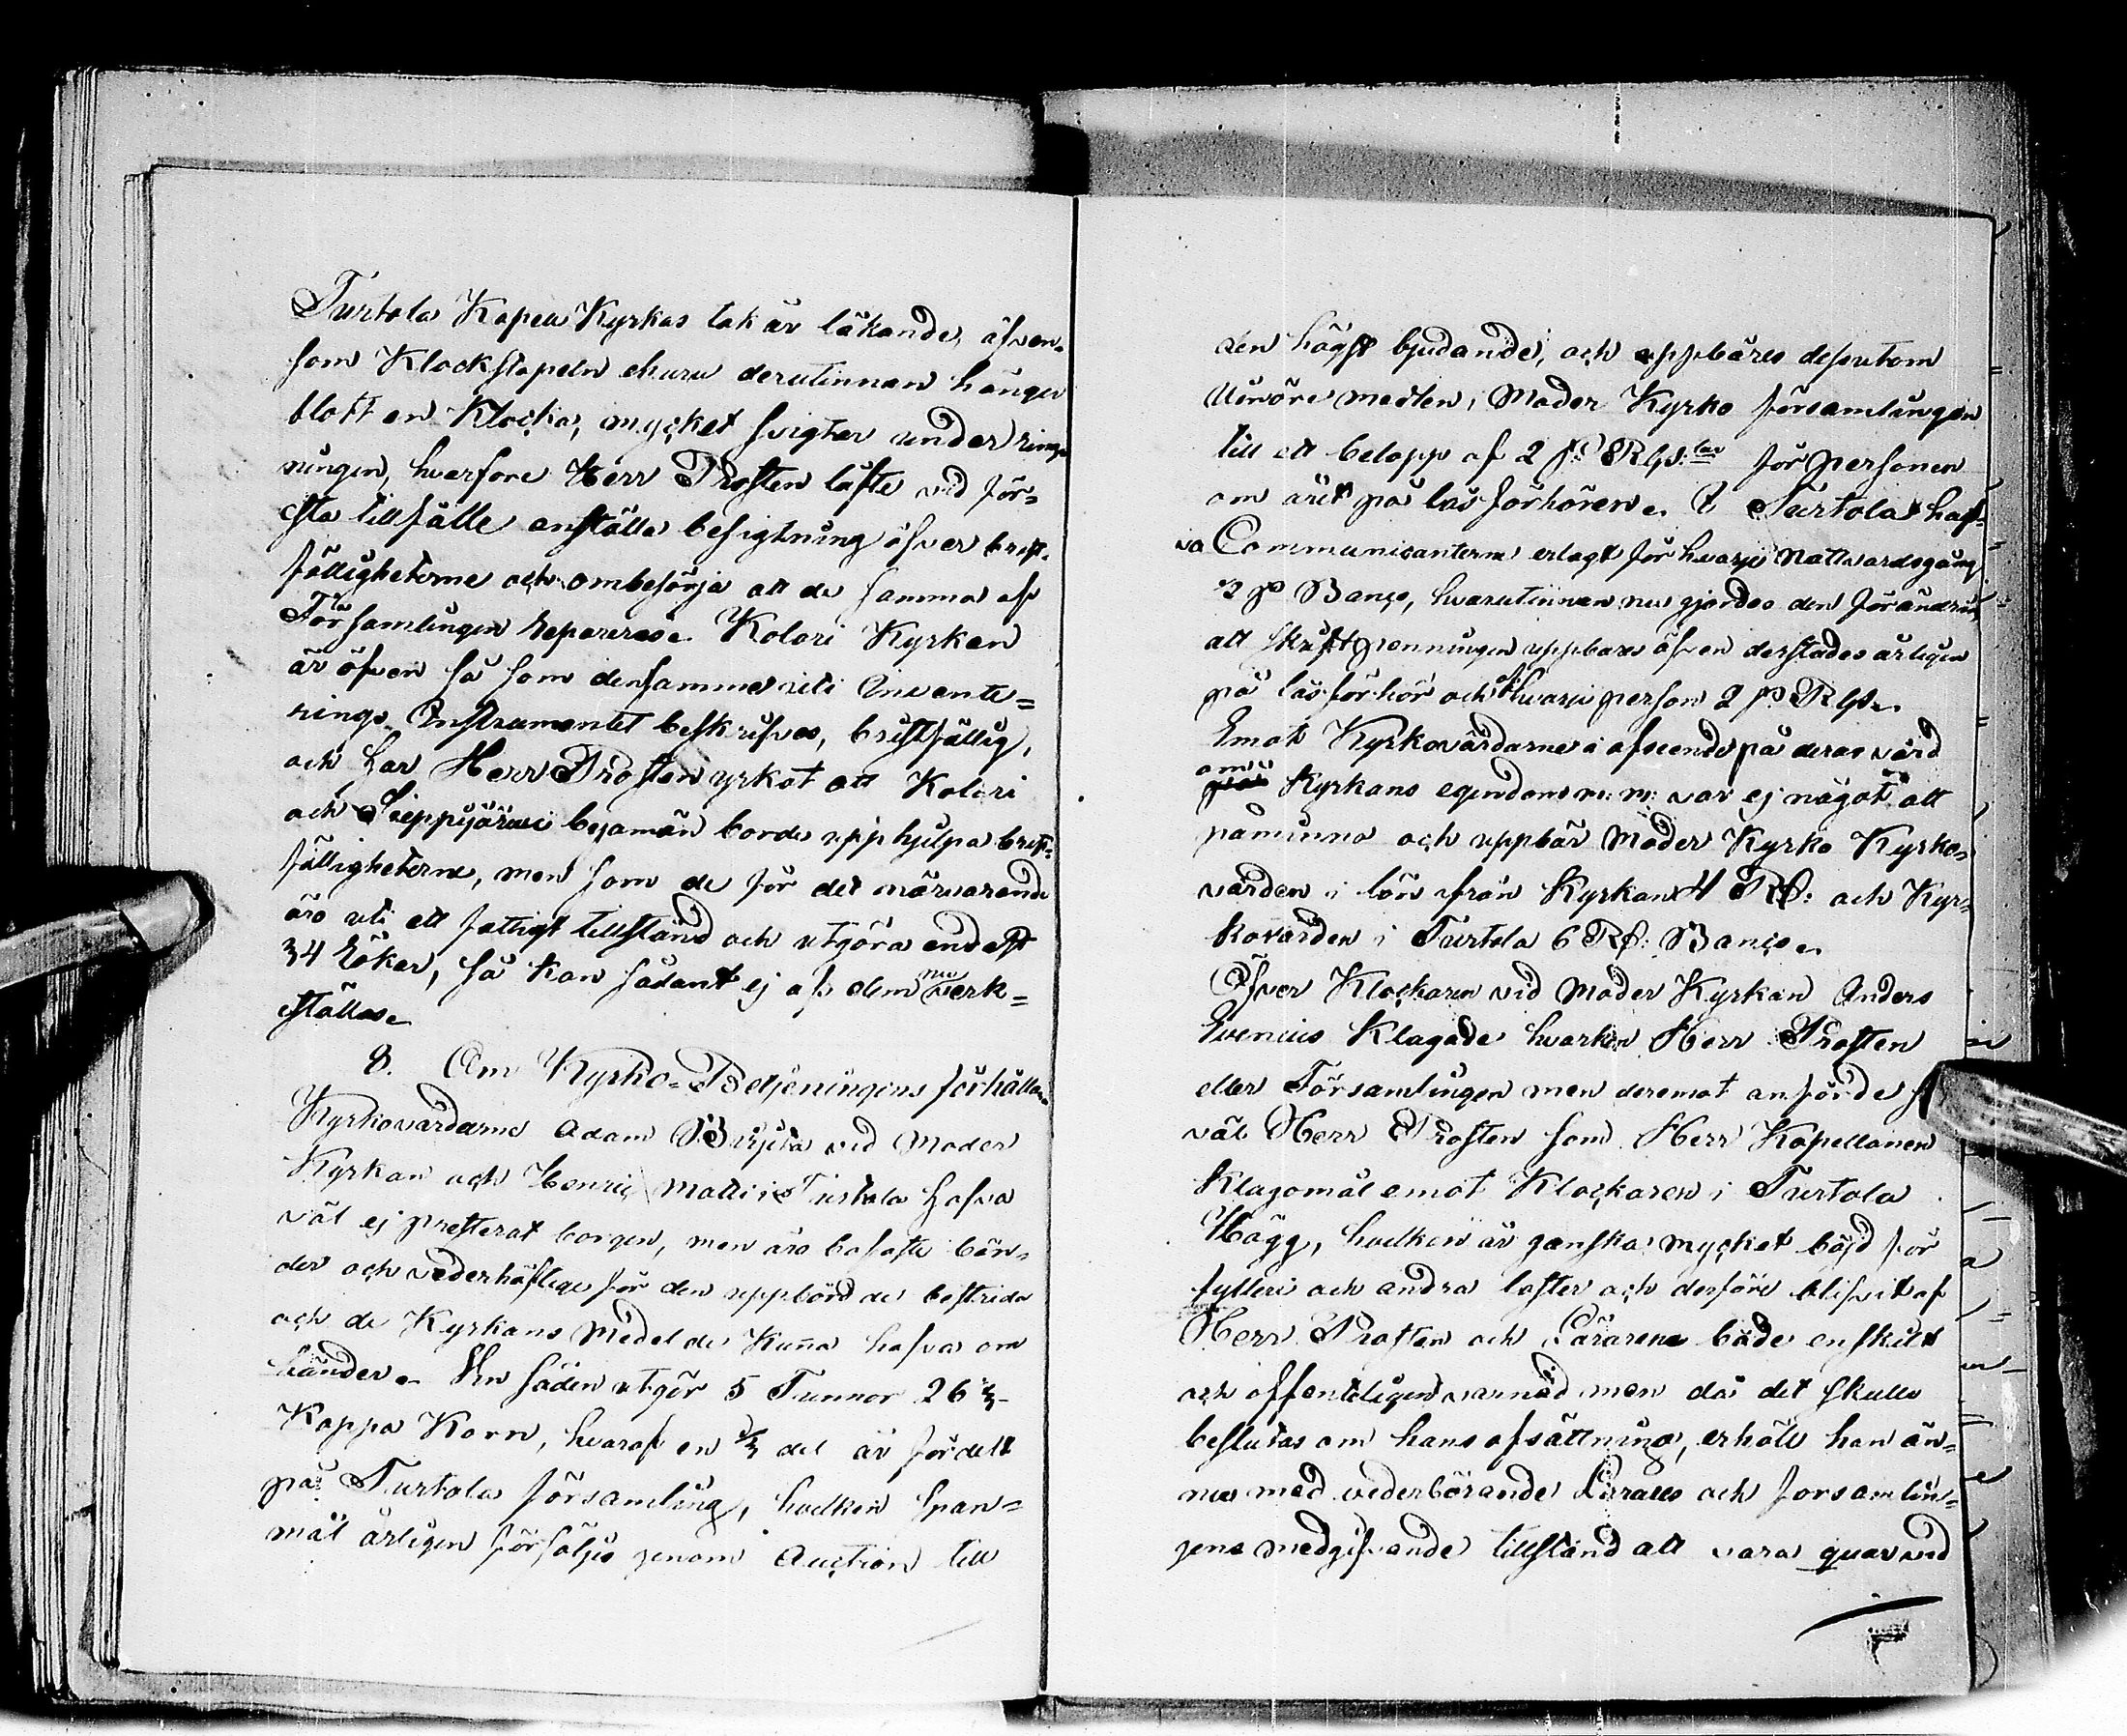 Turtola Kapell Kyrkas tak är läkande, äfven-
som Klockstapeln ehuru derutinnan hänger
blott en Klocka, mycket svigtar under ring-
ningen, hvarfore Herr Prosten läfte vid för-
sta tillfälle anställa besigtning öfver brist-
fälligheterne och ombesörja att de samma af
Församlingen repareras. Kolari Kyrkan
är äfven så som densamma uti Invente-
rings Instrumentet beskrifves, bristfällig,
och har Herr Prosten yrkat att Kolari
och Sieppijärvi byamän borde upphjelpa brist-
fälligheterne, men som de för det närvarande
äro uti ett fattigt tillstånd och utgöra endast
34 Rökar, så kan sådant ej af dem nu verk-
ställas.
8. Om Kyrko-Betjeningens förhållan-
Kyrkovärdarne Adam vid Moder
Kyrkan och Henric Matti i Turtola hafva
väl ej presterat borgen, men äro bosatte bön-
der och vederhäftige för den uppbörd de bestrida
och de Kyrkans Medel de kunna hafva om
händer. Kyrko säden utgör 5 Tunnor 26 2/3
Kappa Korn, hvaraf en 1/3 del är fördelt
på Turtola församling, hvilken span-
mål årligen försäljes genom Auction till
den högst bjudande, och uppbäres dessutom
medlen i Moder Kyrko församlingen
till ett belopp af 2 s. Rgs: för personen
om året på läs förhören. I Turtola haf-
va Communicanterne erlagt för hvarje Nattvardsgång
2 s Banco, hvarutinnan nu gjordes den förändring
att skriftpenningen uppbäres äfven derstädes årligen
på läs förhör och af hvarje person 2 s Rgs.
Emot Kyrkovärdarne i afseende på deras vård
om Kyrkans egendom m: m: var ej något att
påminna och uppbär Moder Kyrko Kyrko-
värden i lön ifrån Kyrkan 4 Rd: och Kyr-
kovärden i Turtola 6 Rd: Banco.
Öfver Klockaren vid Moder Kyrkan Anders
Evenius klagade hvarken Herr Prosten
eller Församlingen men deremot anförde så
väl Herr Prosten som Herr Kapellanen
klagomål emot Klockaren i Turtola
Hägg, hvilken är ganska mycket böjd för
fylleri och andra laster och derföre blifvit af
Herr Prosten och Lärarene både enskildt
och offentligen varnad men då det skulle
beslutas om hans afsättning, erhöll han än-
nu med vederbörande Lärares och församlin-
gens medgifvande tillstånd att vara quar vid